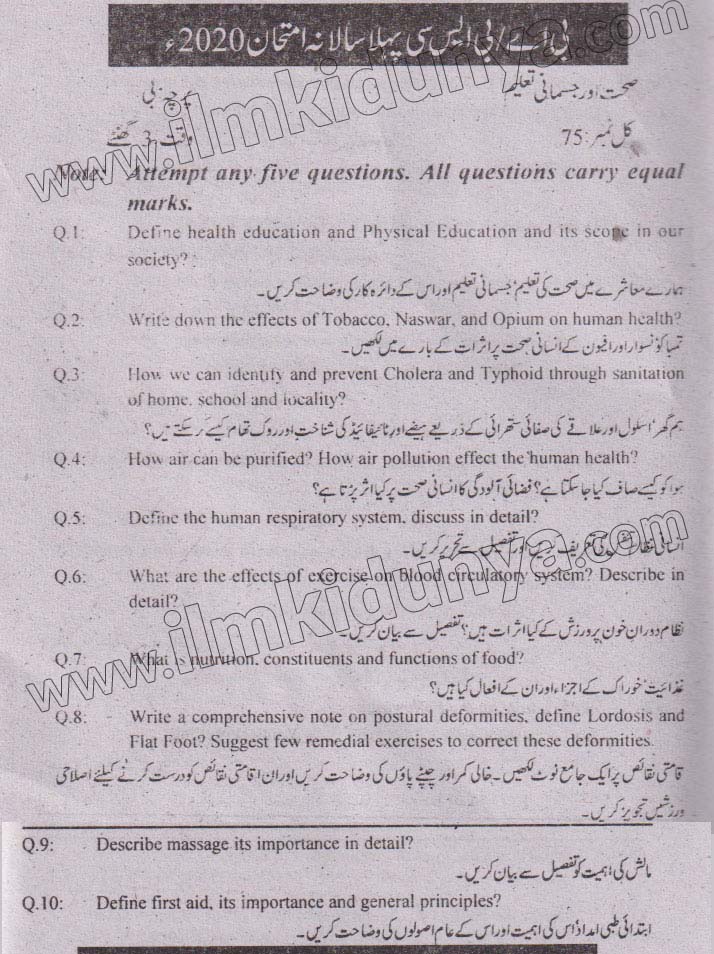 بی اے/بی ایس سی پہلا سالانہ امتحان 2020ء
صحت اور جسمانی تعلیم
پرچہ: بی
کل نمبر: 75
وقت: 3 گھنٹے
Note: Attempt any five questions. All questions carry equal
marks.
Q.1: Define health education and Physical Education and its scope in our
society?
ہمارے معاشرے میں صحت کی تعلیم، جسمانی تعلیم اور اس کے دائرہ کار کی وضاحت کریں۔
Q.2: Write down the effects of Tobacco, Naswar, and Opium on human health?
تمباکو، نسوار اور افیون کے انسانی صحت پر اثرات کے بارے میں لکھیں۔
Q.3: How we can identify and prevent Cholera and Typhoid through sanitation
of home, school and locality?
ہم گھر، سکول اور علاقے کی صفائی ستھرائی کے ذریعے ہیضے اور ٹائیفائیڈ کی شناخت اور روک تھام کیسے کر سکتے ہیں؟
Q.4: How air can be purified? How air pollution effect the human health?
ہوا کو کیسے صاف کیا جا سکتا ہے؟ فضائی آلودگی کا انسانی صحت پر کیا اثر پڑتا ہے؟
Q.5: Define the human respiratory system, discuss in detail?
انسانی نظام تنفس کی تعریف کریں اور تفصیل سے تحریر کریں۔
Q.6: What are the effects of exercise on blood circulatory system? Describe in
detail?
نظام دوران خون پر ورزش کے کیا اثرات ہیں؟ تفصیل سے بیان کریں۔
Q.7: What is nutrition, constituents and functions of food?
غذائیت، خوراک کے اجزاء اور ان کے افعال کیا ہیں؟
Q.8: Write a comprehensive note on postural deformities, define Lordosis and
Flat Foot? Suggest few remedial exercises to correct these deformities.
قامتی نقائص پر ایک جامع نوٹ لکھیں۔ خالی کمر اور چپٹے پاؤں کی وضاحت کریں اور ان اقامتی نقائص کو درست کرنے کیلئے اصلاحی
ورزشیں تجویز کریں۔
Q.9: Describe massage its importance in detail?
مالش کی اہمیت کو تفصیل سے بیان کریں۔
Q.10: Define first aid, its importance and general principles?
ابتدائی طبی امداد، اس کی اہمیت اور اس کے عام اصولوں کی وضاحت کریں۔
www.ilmkidunya.com
www.ilmkidunya.com